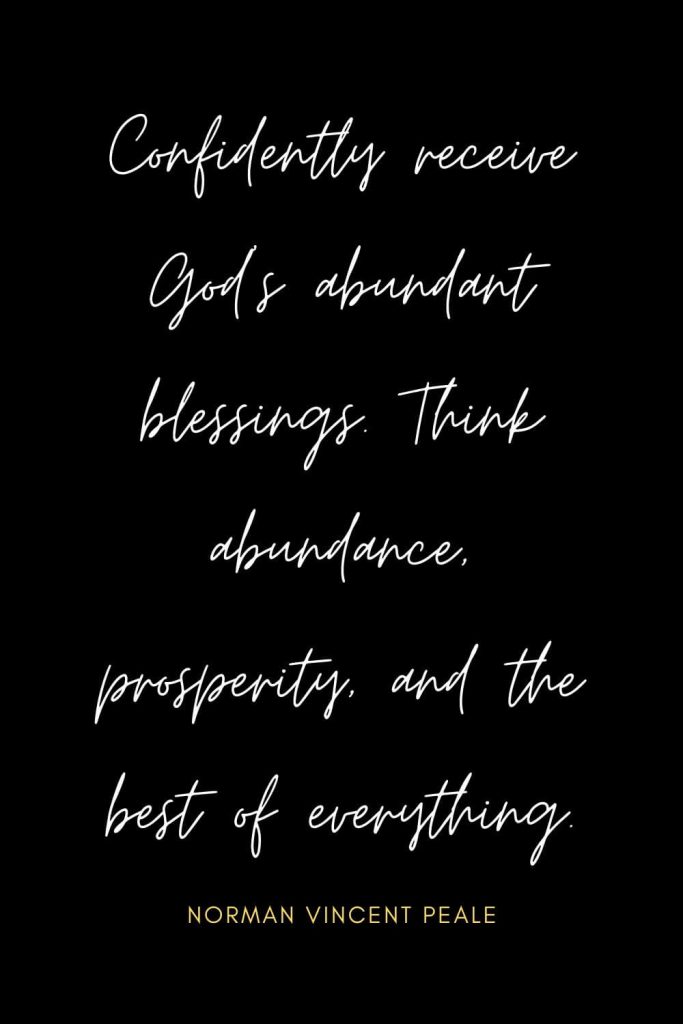 Confidently receive
God's abundant
blessings. Think
abundance,
prosperity, and the
best of everything.
NORMAN VINCENT PEALE